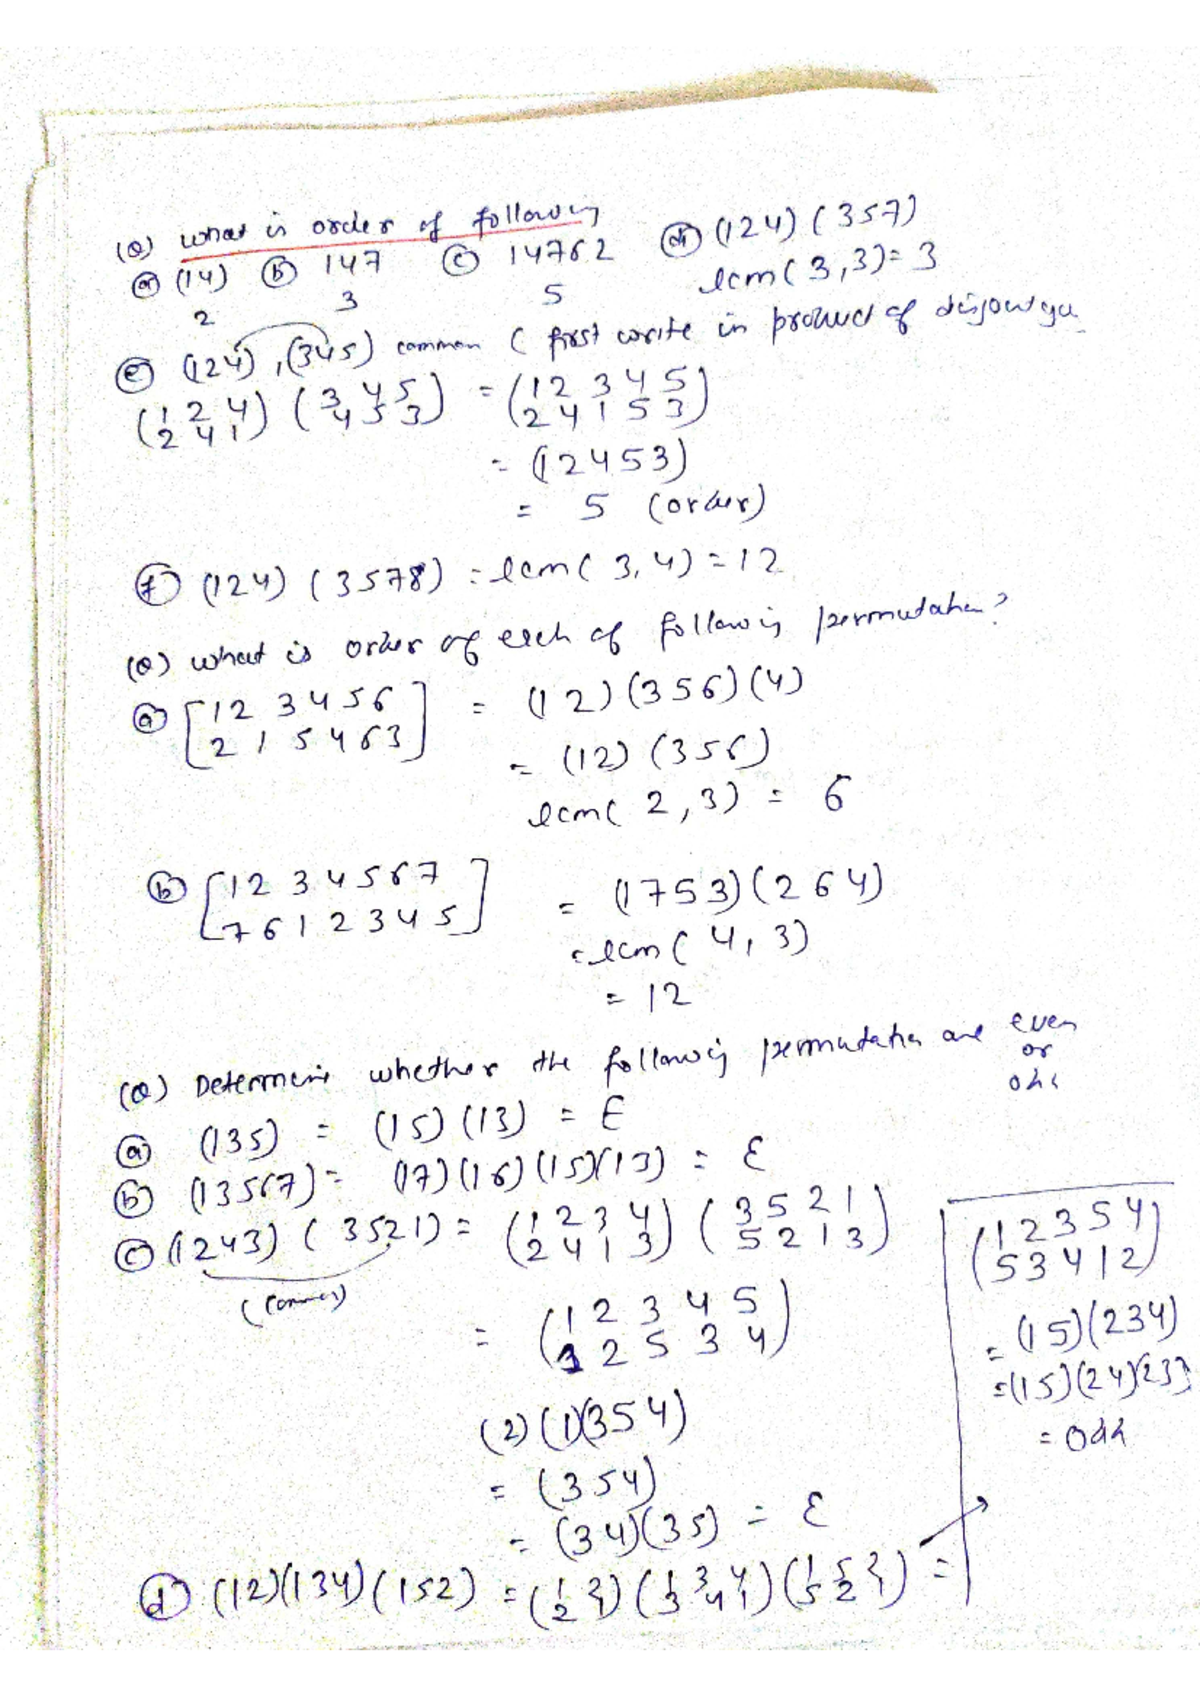 (Q) what is order of following
(a) (14) (b) 147 (c) 14762 (d) (124)(357)
2 3 5 lcm(3,3)= 3
(e) (124),(345) common ( first write in product of
(1 2 4 / 2 4 1) (3 4 5 / 4 5 3) = (1 2 3 4 5 / 2 4 1 5 3)
= (12453)
= 5 (order)
(f) (124) (3578) = lcm( 3,4) = 12
(Q) what is order of each of following permutation?
(a) [1 2 3 4 5 6 / 2 1 5 4 6 3] = (12)(356)(4)
= (12) (356)
lcm( 2,3) = 6
(b) [1 2 3 4 5 6 7 / 7 6 1 2 3 4 5] = (1753)(264)
= lcm( 4,3)
= 12
(Q) Determine whether the following permutation are even
or
odd
(a) (135) = (15)(13) = E
(b) (13567) = (17)(16)(15)(13) = E
(c) (1243) ( 3521) = (1 2 3 4 / 2 4 1 3) (3 5 2 1 / 5 2 1 3)
(common)
= (1 2 3 4 5 / 1 2 5 3 4)
(2)(1)(354)
= (354)
= (34)(35) = E
(d) (12)(134)(152) = (1 2 / 2 1) (1 3 4 / 3 4 1) (1 5 2 / 5 2 1) =
(1 2 3 5 4 / 5 3 4 1 2)
= (15)(234)
= (15)(24)(23)
= odd